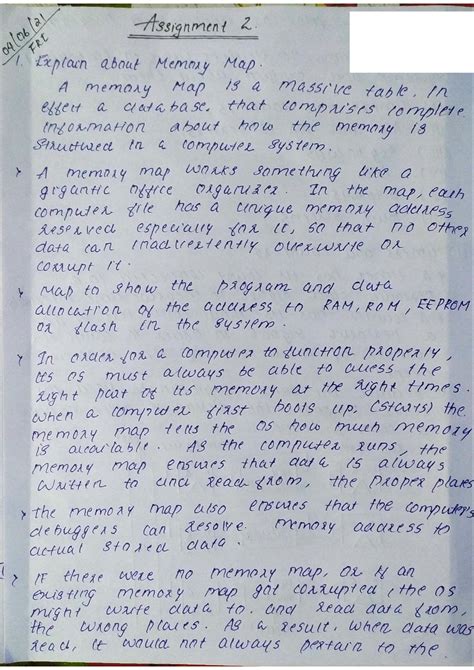 Assignment 2.
04/06/21
FRI
1. Explain about Memory Map.
A memory Map is a massive table, In
effect a database, that comprises complete
information about how the memory is
structured in a computer system.
A memory map works something like a
gigantic office organizer. In the map, each
computer file has a unique memory address
reserved especially for it, so that no other
data can inadvertently overwrite or
corrupt it.
Map to show the program and data
allocation of the address to RAM, ROM, EEPROM
or flash in the system.
In order for a computer to function properly,
its OS must always be able to access the
right part of its memory at the right times.
When a computer first boots up, (starts) the
memory map tells the OS how much memory
is available. As the computer runs, the
memory map ensures that data is always
written to and read from, the proper places
the memory map also ensures that the computer's
debuggers can resolve memory address to
actual stored data.
If there were no memory map, or if an
existing memory map got corrupted, the OS
might write data to, and read data from,
the wrong places. As a result, when data was
read, it would not always pertain to the